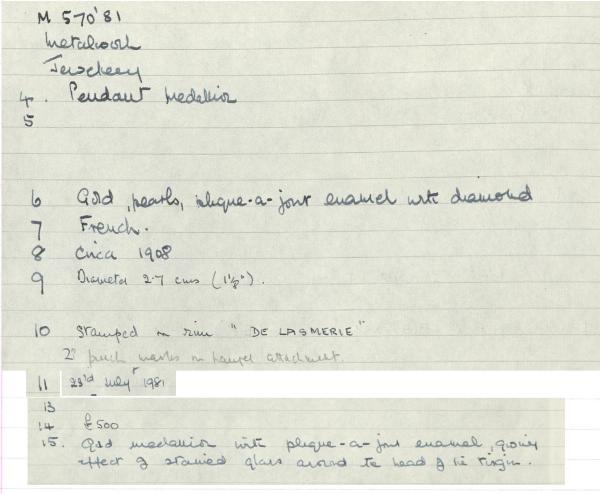 M 570'81
Metalwork
Jewellery
4. Pendant medallion
5
6 Gold, pearls, plique-a-jour enamel with diamond
7 French.
8 Circa 1908
9 Diameter 2.7 cms (1⅛").
10 Stamped on rim "DE LASMERIE"
2 punch marks on hanger attachment.
11 23rd July 1981
13
14 £500
15. Gold medallion with plique-a-jour enamel, giving
effect of stained glass around the head of the Virgin.